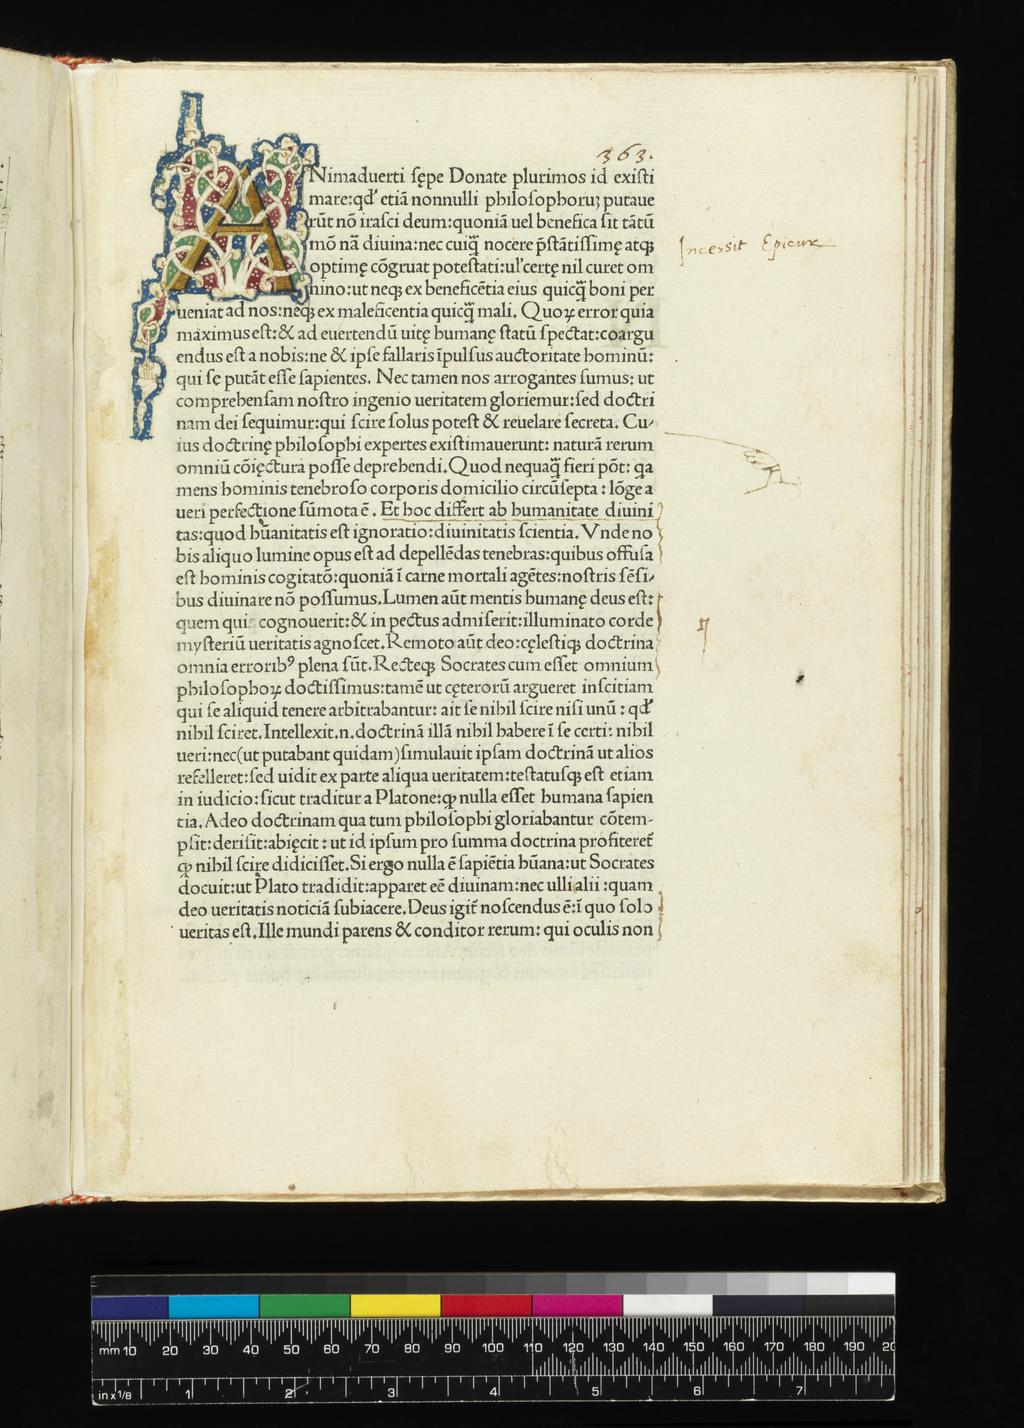 363.
ANimaduerti sępe Donate plurimos id existi
mare: qđ etiā nonnulli philosophoruȝ putaue
rūt nō irasci deum: quoniā uel benefica sit tātū
mō nā diuina: nec cuiq̄ nocere p̄stātissimę atqꝫ
optimę cōgruat potestati: ul' certę nil curet om
nino: ut neqꝫ ex beneficētia eius quicq̄ boni per
ueniat ad nos: neqꝫ ex maleficentia quicq̄ mali. Quoꝝ error quia
maximus est: & ad euertendū uitę humanę statū spectat: coargu
endus est a nobis: ne & ipse fallaris īpulsus auctoritate hominū:
qui sę putāt esse sapientes. Nec tamen nos arrogantes sumus: ut
comprehensam nostro ingenio ueritatem gloriemur: sed doctri
nam dei sequimur: qui scire solus potest & reuelare secreta. Cu⸗
ius doctrinę philosophi expertes existimauerunt: naturā rerum
omniū cōięctura posse deprehendi. Quod nequaq̄ fieri pōt: qa
mens hominis tenebroso corporis domicilio circūsepta: lōge a
ueri perfectione sūmota ē. Et hoc differt ab humanitate diuini
tas: quod hūanitatis est ignoratio: diuinitatis scientia. Vnde no
bis aliquo lumine opus est ad depellēdas tenebras: quibus offusa
est hominis cogitatō: quoniā ī carne mortali agētes: nostris sēsi⸗
bus diuinare nō possumus. Lumen aūt mentis humanę deus est:
quem quis cognouerit: & in pectus admiserit: illuminato corde
mysteriū ueritatis agnoscet. Remoto aūt deo: cęlestiqꝫ doctrina
omnia errorib⁹ plena sūt. Recteqꝫ Socrates cum esset omnium
philosophoꝝ doctissimus: tamē ut cęterorū argueret inscitiam
qui se aliquid tenere arbitrabantur: ait se nihil scire nisi unū: qđ
nihil sciret. Intellexit .n. doctrinā illā nihil habere ī se certi: nihil
ueri: nec (ut putabant quidam) simulauit ipsam doctrinā ut alios
refelleret: sed uidit ex parte aliqua ueritatem: testatusqꝫ est etiam
in iudicio: sicut traditur a Platone: ꝙ nulla esset humana sapien
tia. Adeo doctrinam qua tum philosophi gloriabantur cōtem-
psit: derisit: abięcit: ut id ipsum pro summa doctrina profiteret̄
ꝙ nihil scire didicisset. Si ergo nulla ē sapiētia hūana: ut Socrates
docuit: ut Plato tradidit: apparet eē diuinam: nec ulli alii: quam
deo ueritatis noticiā subiacere. Deus igit̄ noscendus ē: ī quo solo
ueritas est. Ille mundi parens & conditor rerum: qui oculis non
Incessit Epicur
mm 10 20 30 40 50 60 70 80 90 100 110 120 130 140 150 160 170 180 190 20
in x 1/8 1 2 3 4 5 6 7